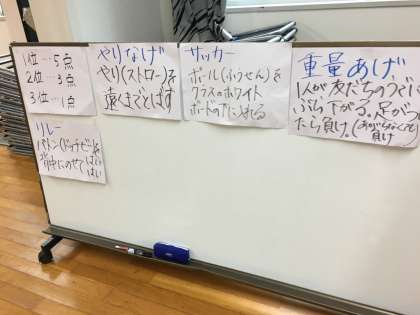 1位…5点
2位…3点
3位…1点
やりなげ
やり(ストロー)を
遠くまでとばす
サッカー
ボール(ふうせん)を
クラスのホワイト
ボードの下に入れる
重量あげ
1人が友だちのうでに
ぶら下がる。足がつい
たら負け。
負け
リレー
バトン(ドッチビー)を
背中にのせて